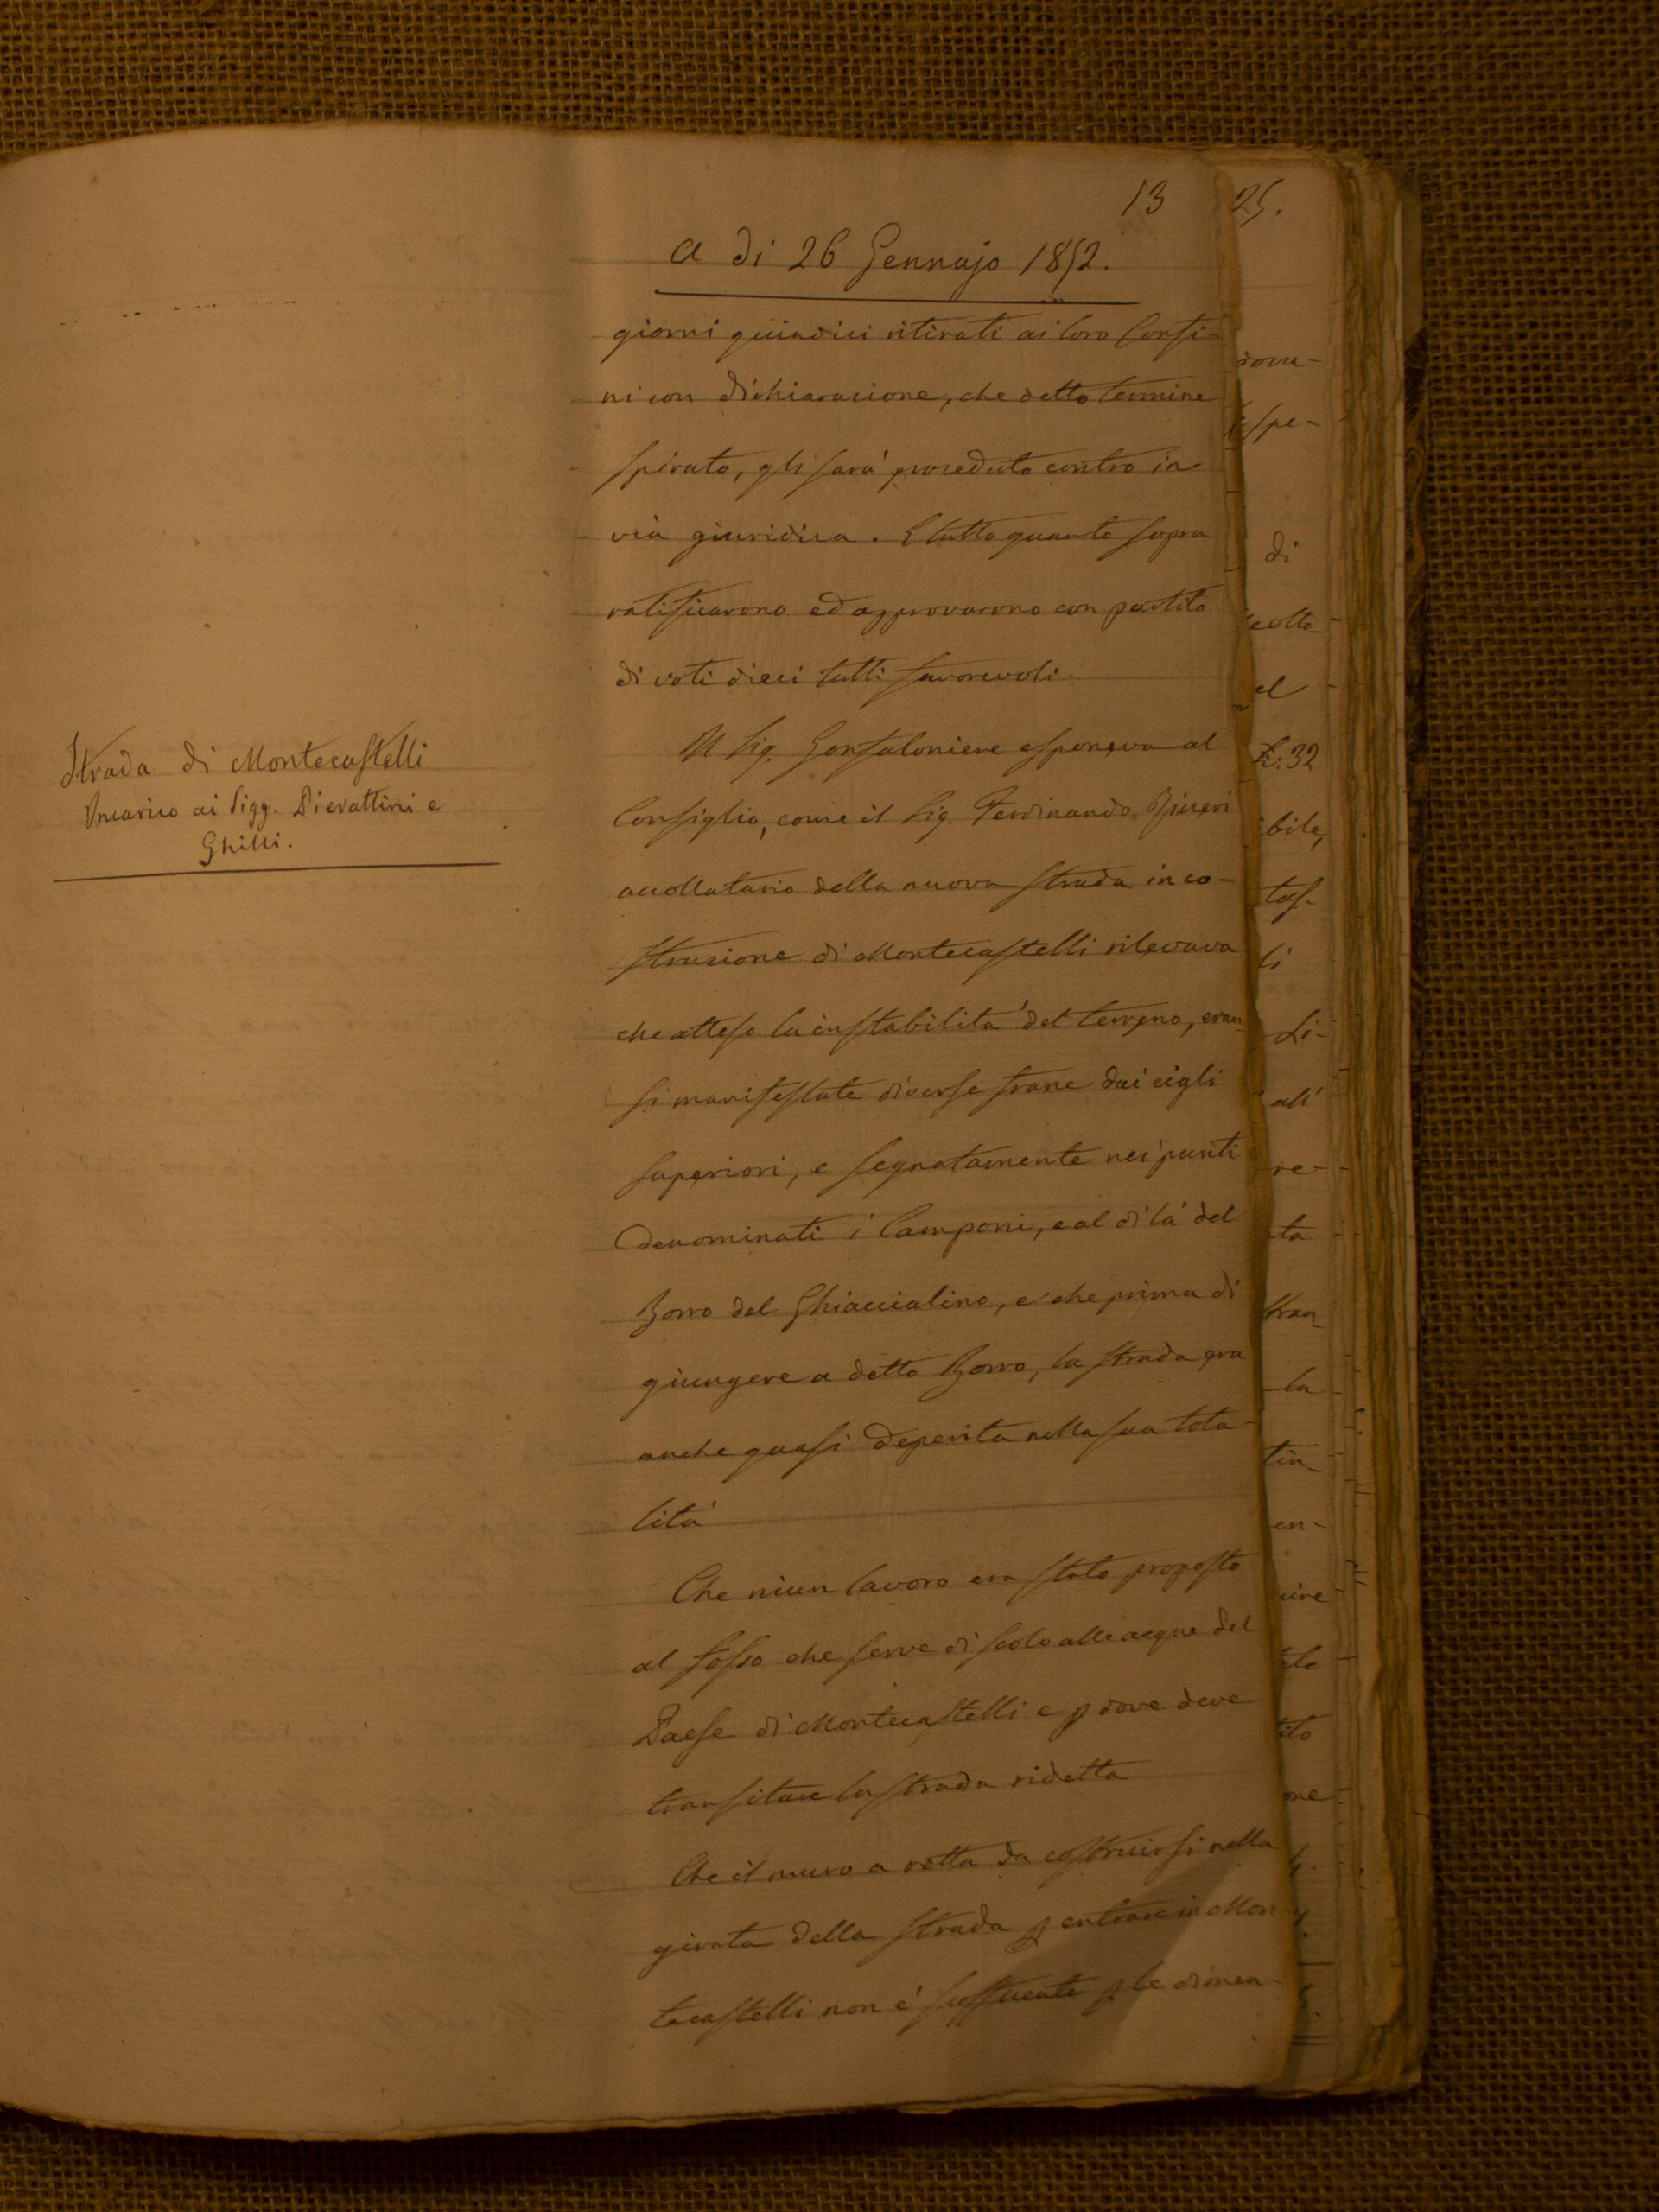 13
a di 26 Gennajo 1852.
giorni quindici ritirati ai loro Confi-
ni con dichiarazione, che detto termine
spirato, gli sarà proceduto contro in
via giuridica. E tutto quanto sopra
ratificarono ed approvarono con partito
di voti dieci tutti favorevoli.
Strada di Montecastelli
Incarico ai Sigg. Pierattini e
Ghilli.
Il Sig. Gonfaloniere esponeva al
Consiglio, come il Sig. Ferdinando
accollatario della nuova strada in co-
struzione di Montecastelli rilevava
che atteso la instabilità del terreno, eran
si manifestate diverse frane dai cigli
superiori, e segnatamente nei punti
denominati i Camponi, e al di là del
Borro del Ghiaccialino, e che prima di
giungere a detto Borro, la strada era
anche quasi deperita nella sua tota-
lità
Che niun lavoro era stato proposto
al fosso che serve di scolo alle acque del
Paese di Montecastelli e p dove deve
transitare la strada ridetta
Che il muro a retta da costruirsi nella
girata della strada p entrare in Mon
tecastelli non è sufficiente p le dimen-
25.
rova-
spe-
di
el
L. 32
ibile,
tas-
li
Li-
all'
re-
ta
la
tin-
en-